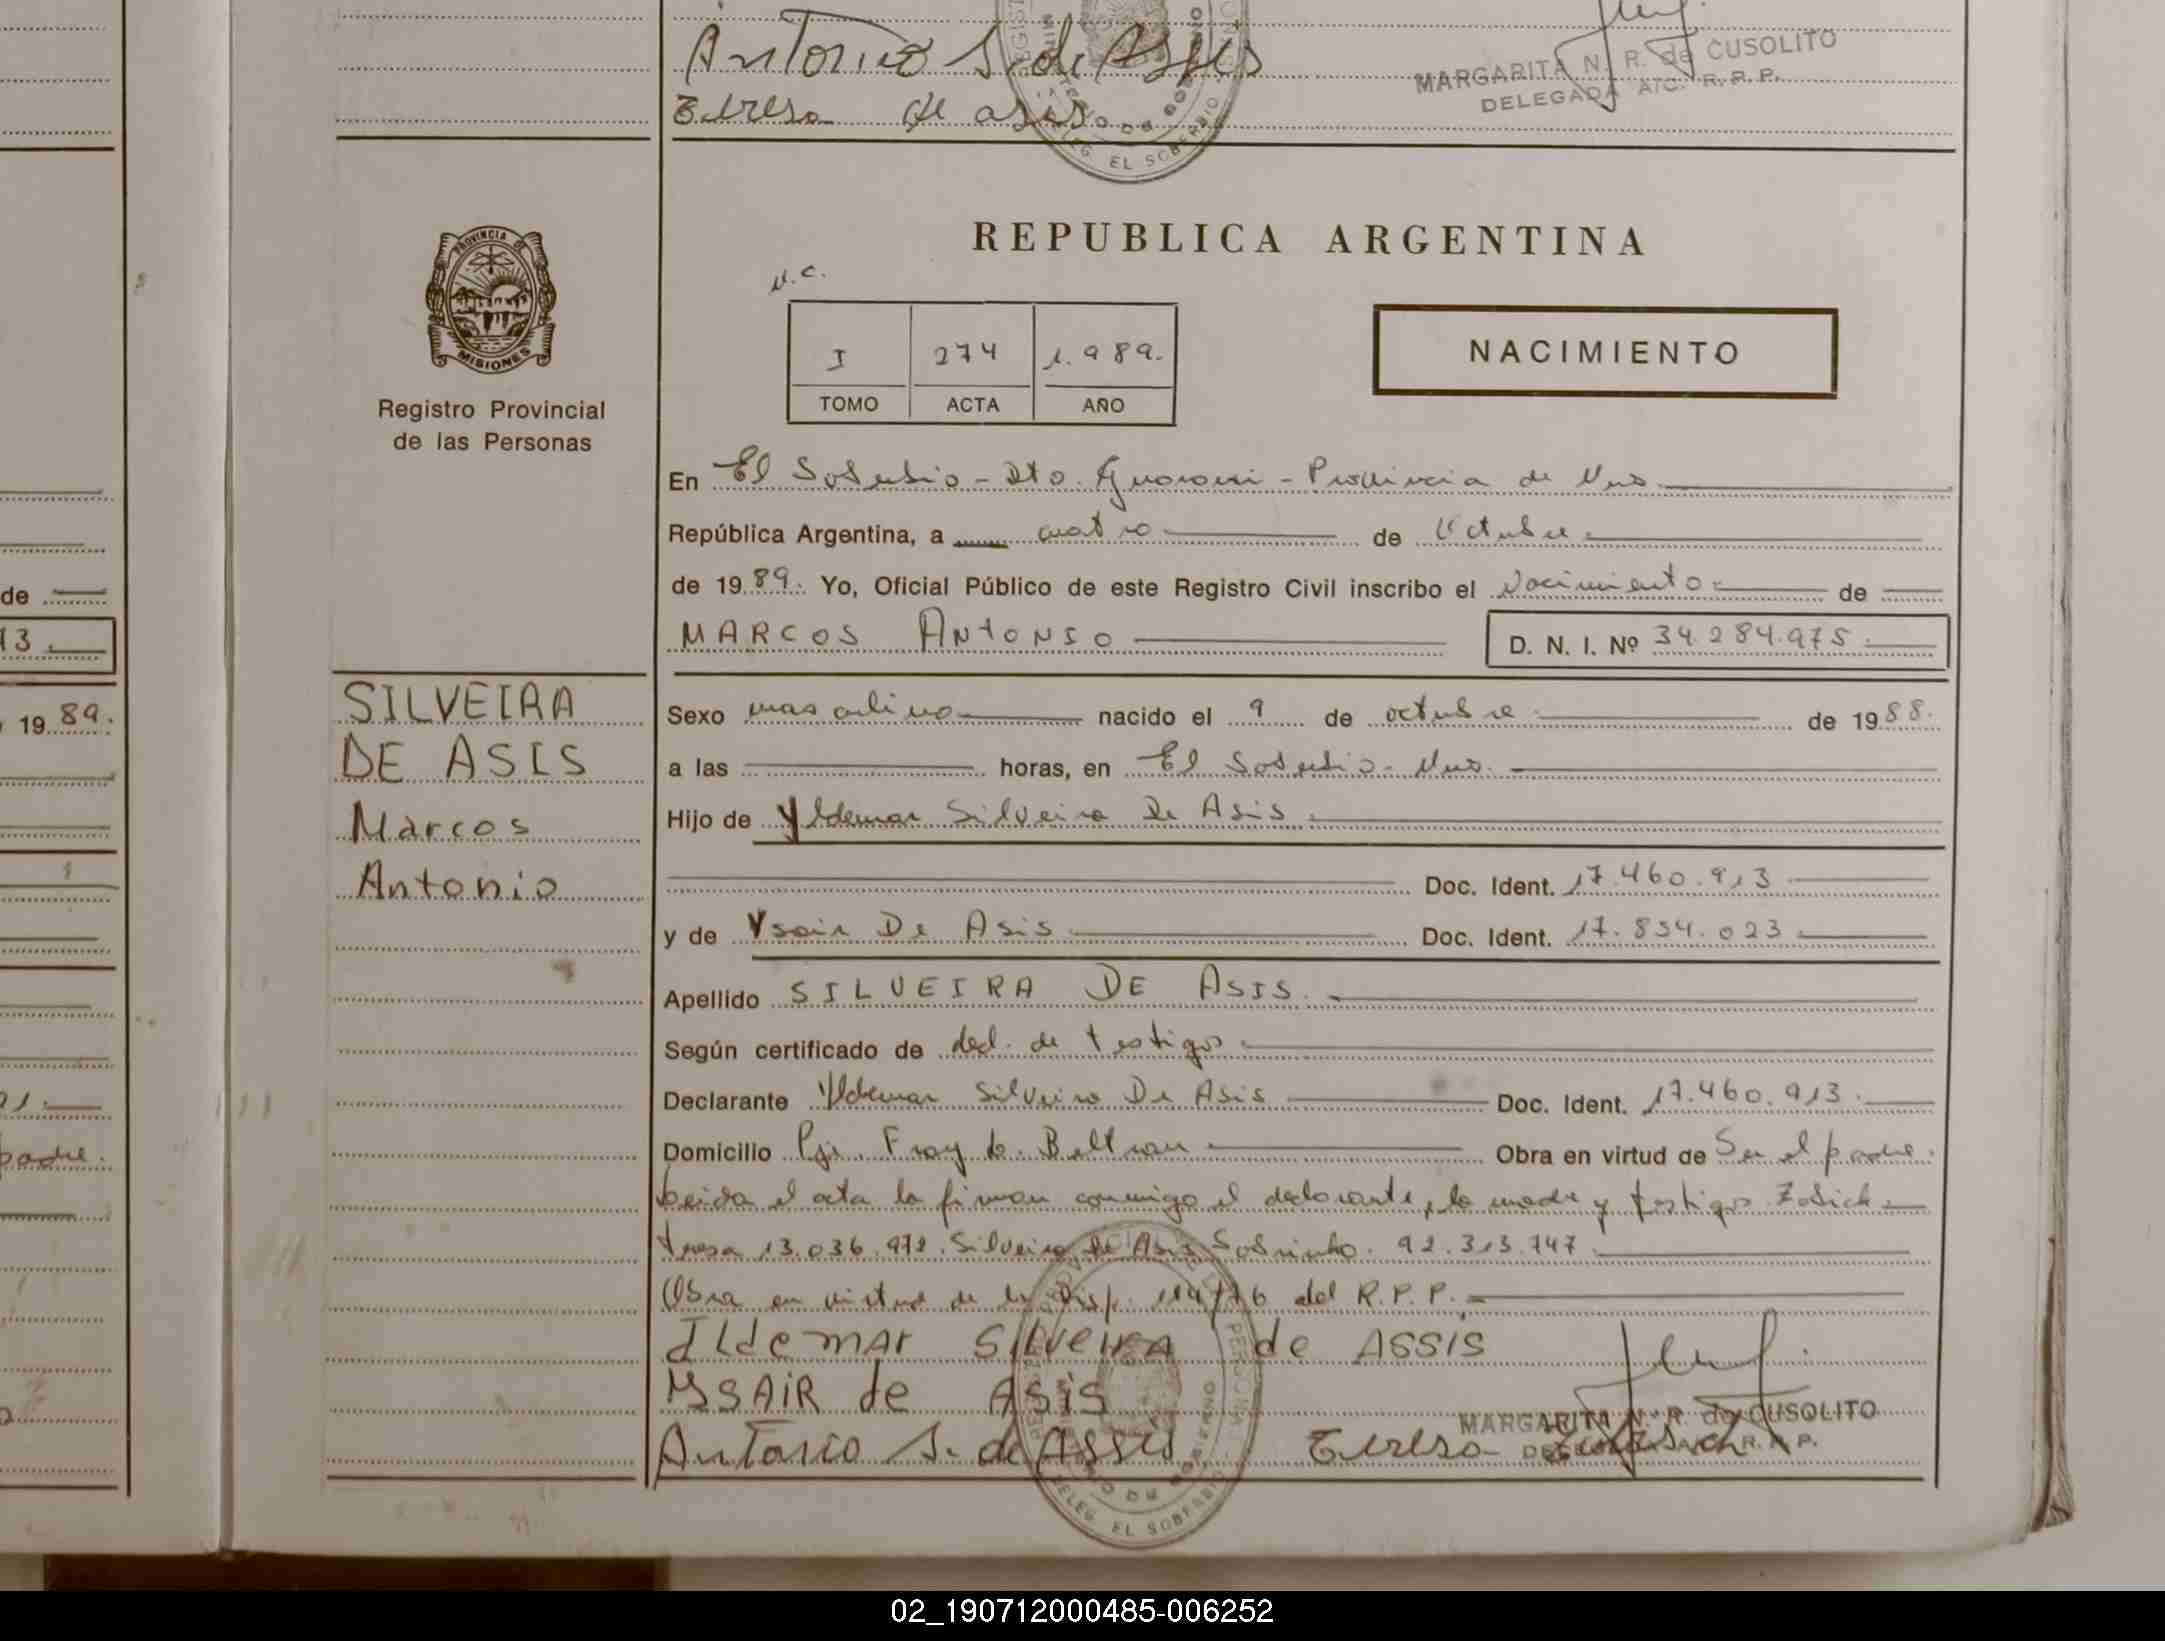 Antonio S. de Assis
Teresa de asis
MARGARITA N. R. de CUSOLITO
DELEGADA A/C. R. P. P.
DELEG. EL SOBERBIO
PROVINCIA DE
MISIONES
Registro Provincial
de las Personas
REPUBLICA ARGENTINA
N.C.
I 274 1.989.
TOMO ACTA AÑO
NACIMIENTO
En El Soberbio - Dto. Guarani - Provincia de Mnes
República Argentina, a cuatro de Octubre
de 1989. Yo, Oficial Público de este Registro Civil inscribo el Nacimiento de
MARCOS ANTONIO D. N. I. Nº 34.284.975
SILVEIRA
DE ASIS
Marcos
Antonio
Sexo masculino nacido el 9 de octubre de 1988.
a las horas, en El Soberbio - Mnes.
Hijo de Yldemar Silveira De Asis
Doc. Ident. 17.460.913
y de Ysair De Asis Doc. Ident. 17.834.023
Apellido SILVEIRA DE ASIS.
Según certificado de decl. de testigos
Declarante Yldemar Silveira De Asis Doc. Ident. 17.460.913.
Domicilio Pje. Fray L. Beltran Obra en virtud de Ser el padre.
Leida el acta la firman conmigo el declarante, la madre y testigos
13.036.972. Silveira de Asis Sobrinho. 92.313.747
Obra en virtud de la Disp. 114/76 del R.P.P.
Ildemar Silveira de ASSIS
YSAIR de ASIS
MARGARITA N. R. de CUSOLITO
DELEGADA A/C. R. P. P.
Antonio S. de Assis Teresa
DELEG. EL SOBERBIO
de
13
19 89.
padre.
02_190712000485-006252